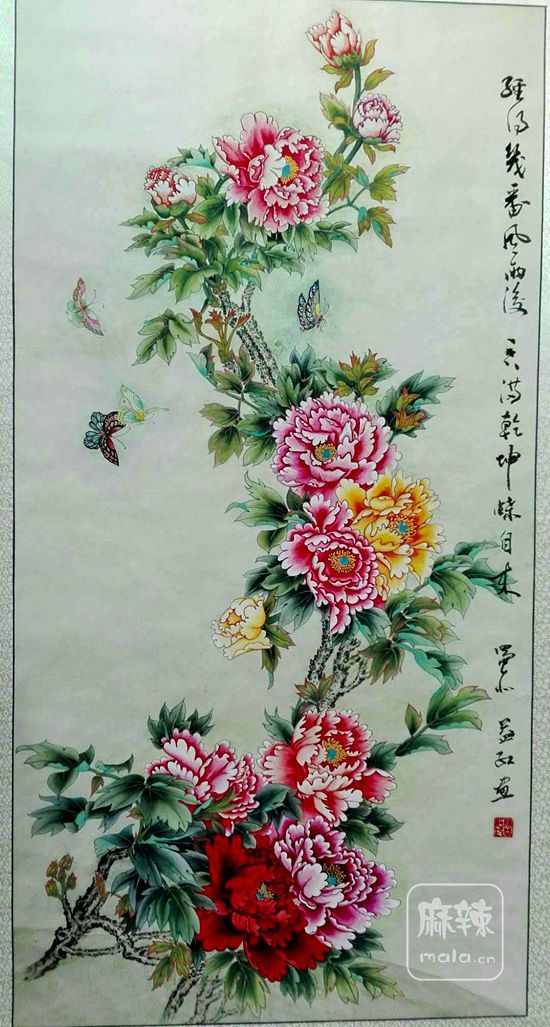 经得几番风雨后 香满乾坤蝶自来
益红画
麻辣
mala.cn